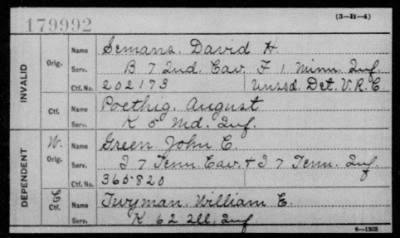 179992
(3-21-4)
INVALID
Orig.
Name Semans, David H
Serv. B 7 Ind. Cav. F 1 Minn Inf
Ctf. No. 202173 Unasd. Det. V.R.C
Ctf.
Name Poethig, August
Serv. K 5 Md. Inf.
DEPENDENT
W.
Orig.
Name Green John E.
Serv. I 7 Tenn Cav. & I 7 Tenn. Inf
Ctf. No. 365820
Ctf.
Name Twyman William E.
Serv. K 62 Ill. Inf
6-1323